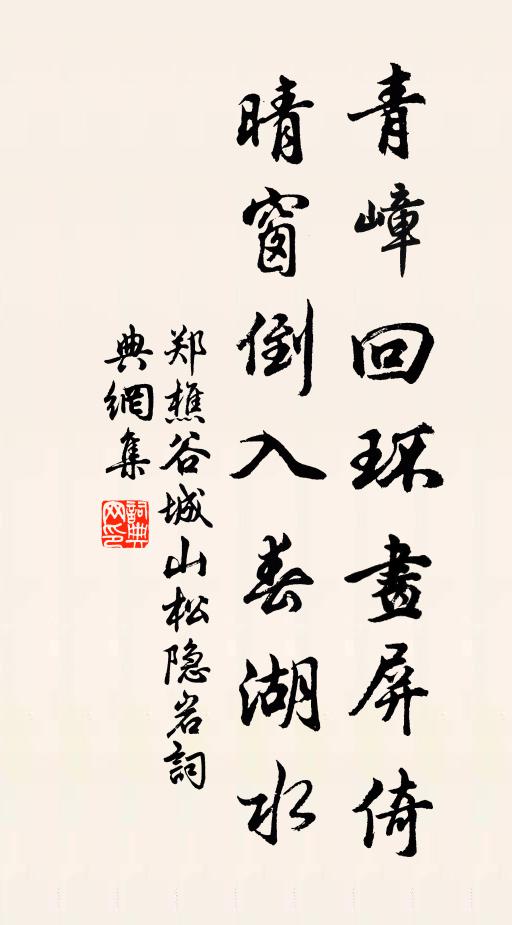 青嶂回环畫屏倚
晴窗倒入春湖水
郑樵谷城山松隐岩詞
典網集
詞典网印